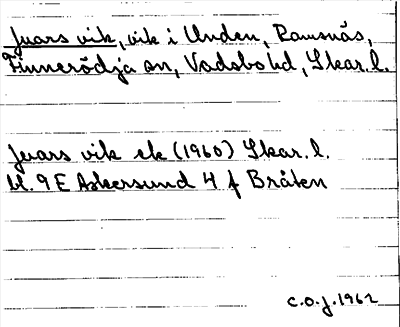 Ivars vik, vik i Unden, Ramsnäs,
Finnerödja sn, Vadsbo hd, Skar. l.
Ivars vik ek (1960) Skar. l.
bl. 9 E Askersund 4 f Bråten
C.O.J. 1962